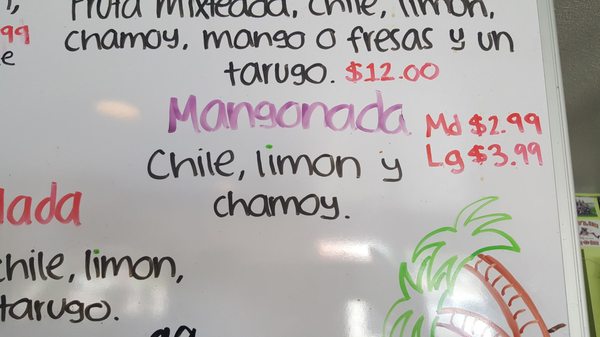 Fruta mixteada, chile, limon,
.99
chamoy, mango o fresas y un
tarugo. $12.00
Mangonada Md $2.99
Chile, limon y Lg $3.99
chamoy.
lada
chile, limon,
tarugo.